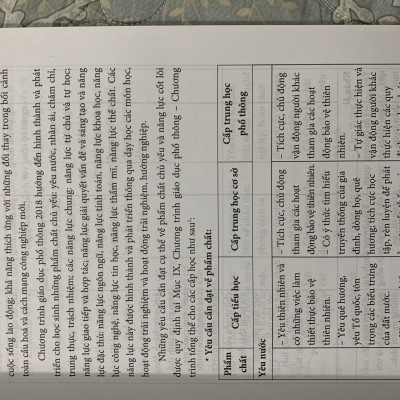 cuộc sống lao động; khả năng thích ứng với những đổi thay trong bối cảnh
toàn cầu hoá và cách mạng công nghiệp mới.
Chương trình giáo dục phổ thông 2018 hướng đến hình thành và phát
triển cho học sinh những phẩm chất chủ yếu: yêu nước, nhân ái, chăm chỉ,
trung thực, trách nhiệm; các năng lực chung: năng lực tự chủ và tự học;
năng lực giao tiếp và hợp tác; năng lực giải quyết vấn đề và sáng tạo và năng
lực đặc thù: năng lực ngôn ngữ, năng lực tính toán, năng lực khoa học, năng
lực công nghệ, năng lực tin học, năng lực thẩm mĩ, năng lực thể chất. Các
năng lực này được hình thành và phát triển thông qua dạy học các môn học,
hoạt động trải nghiệm và hoạt động trải nghiệm, hướng nghiệp.
Những yêu cầu cần đạt cụ thể về phẩm chất chủ yếu và năng lực cốt lõi
được quy định tại Mục IX, Chương trình giáo dục phổ thông – Chương
trình tổng thể cho các cấp học như sau:
* Yêu cầu cần đạt về phẩm chất:
Phẩm
chất
Cấp tiểu học
Cấp trung học cơ sở
Cấp trung học
phổ thông
Yêu nước
– Yêu thiên nhiên và
có những việc làm
thiết thực bảo vệ
thiên nhiên.
– Yêu quê hương,
yêu Tổ quốc, tôn
trọng các biểu trưng
của đất nước.
– Tích cực, chủ động
tham gia các hoạt
động bảo vệ thiên nhiên.
– Có ý thức tìm hiểu
truyền thống của gia
đình, dòng họ, quê
hương; tích cực học
tập, rèn luyện để phát
– Tích cực, chủ động
vận động người khác
tham gia các hoạt
động bảo vệ thiên
nhiên.
– Tự giác thực hiện và
vận động người khác
thực hiện các quy